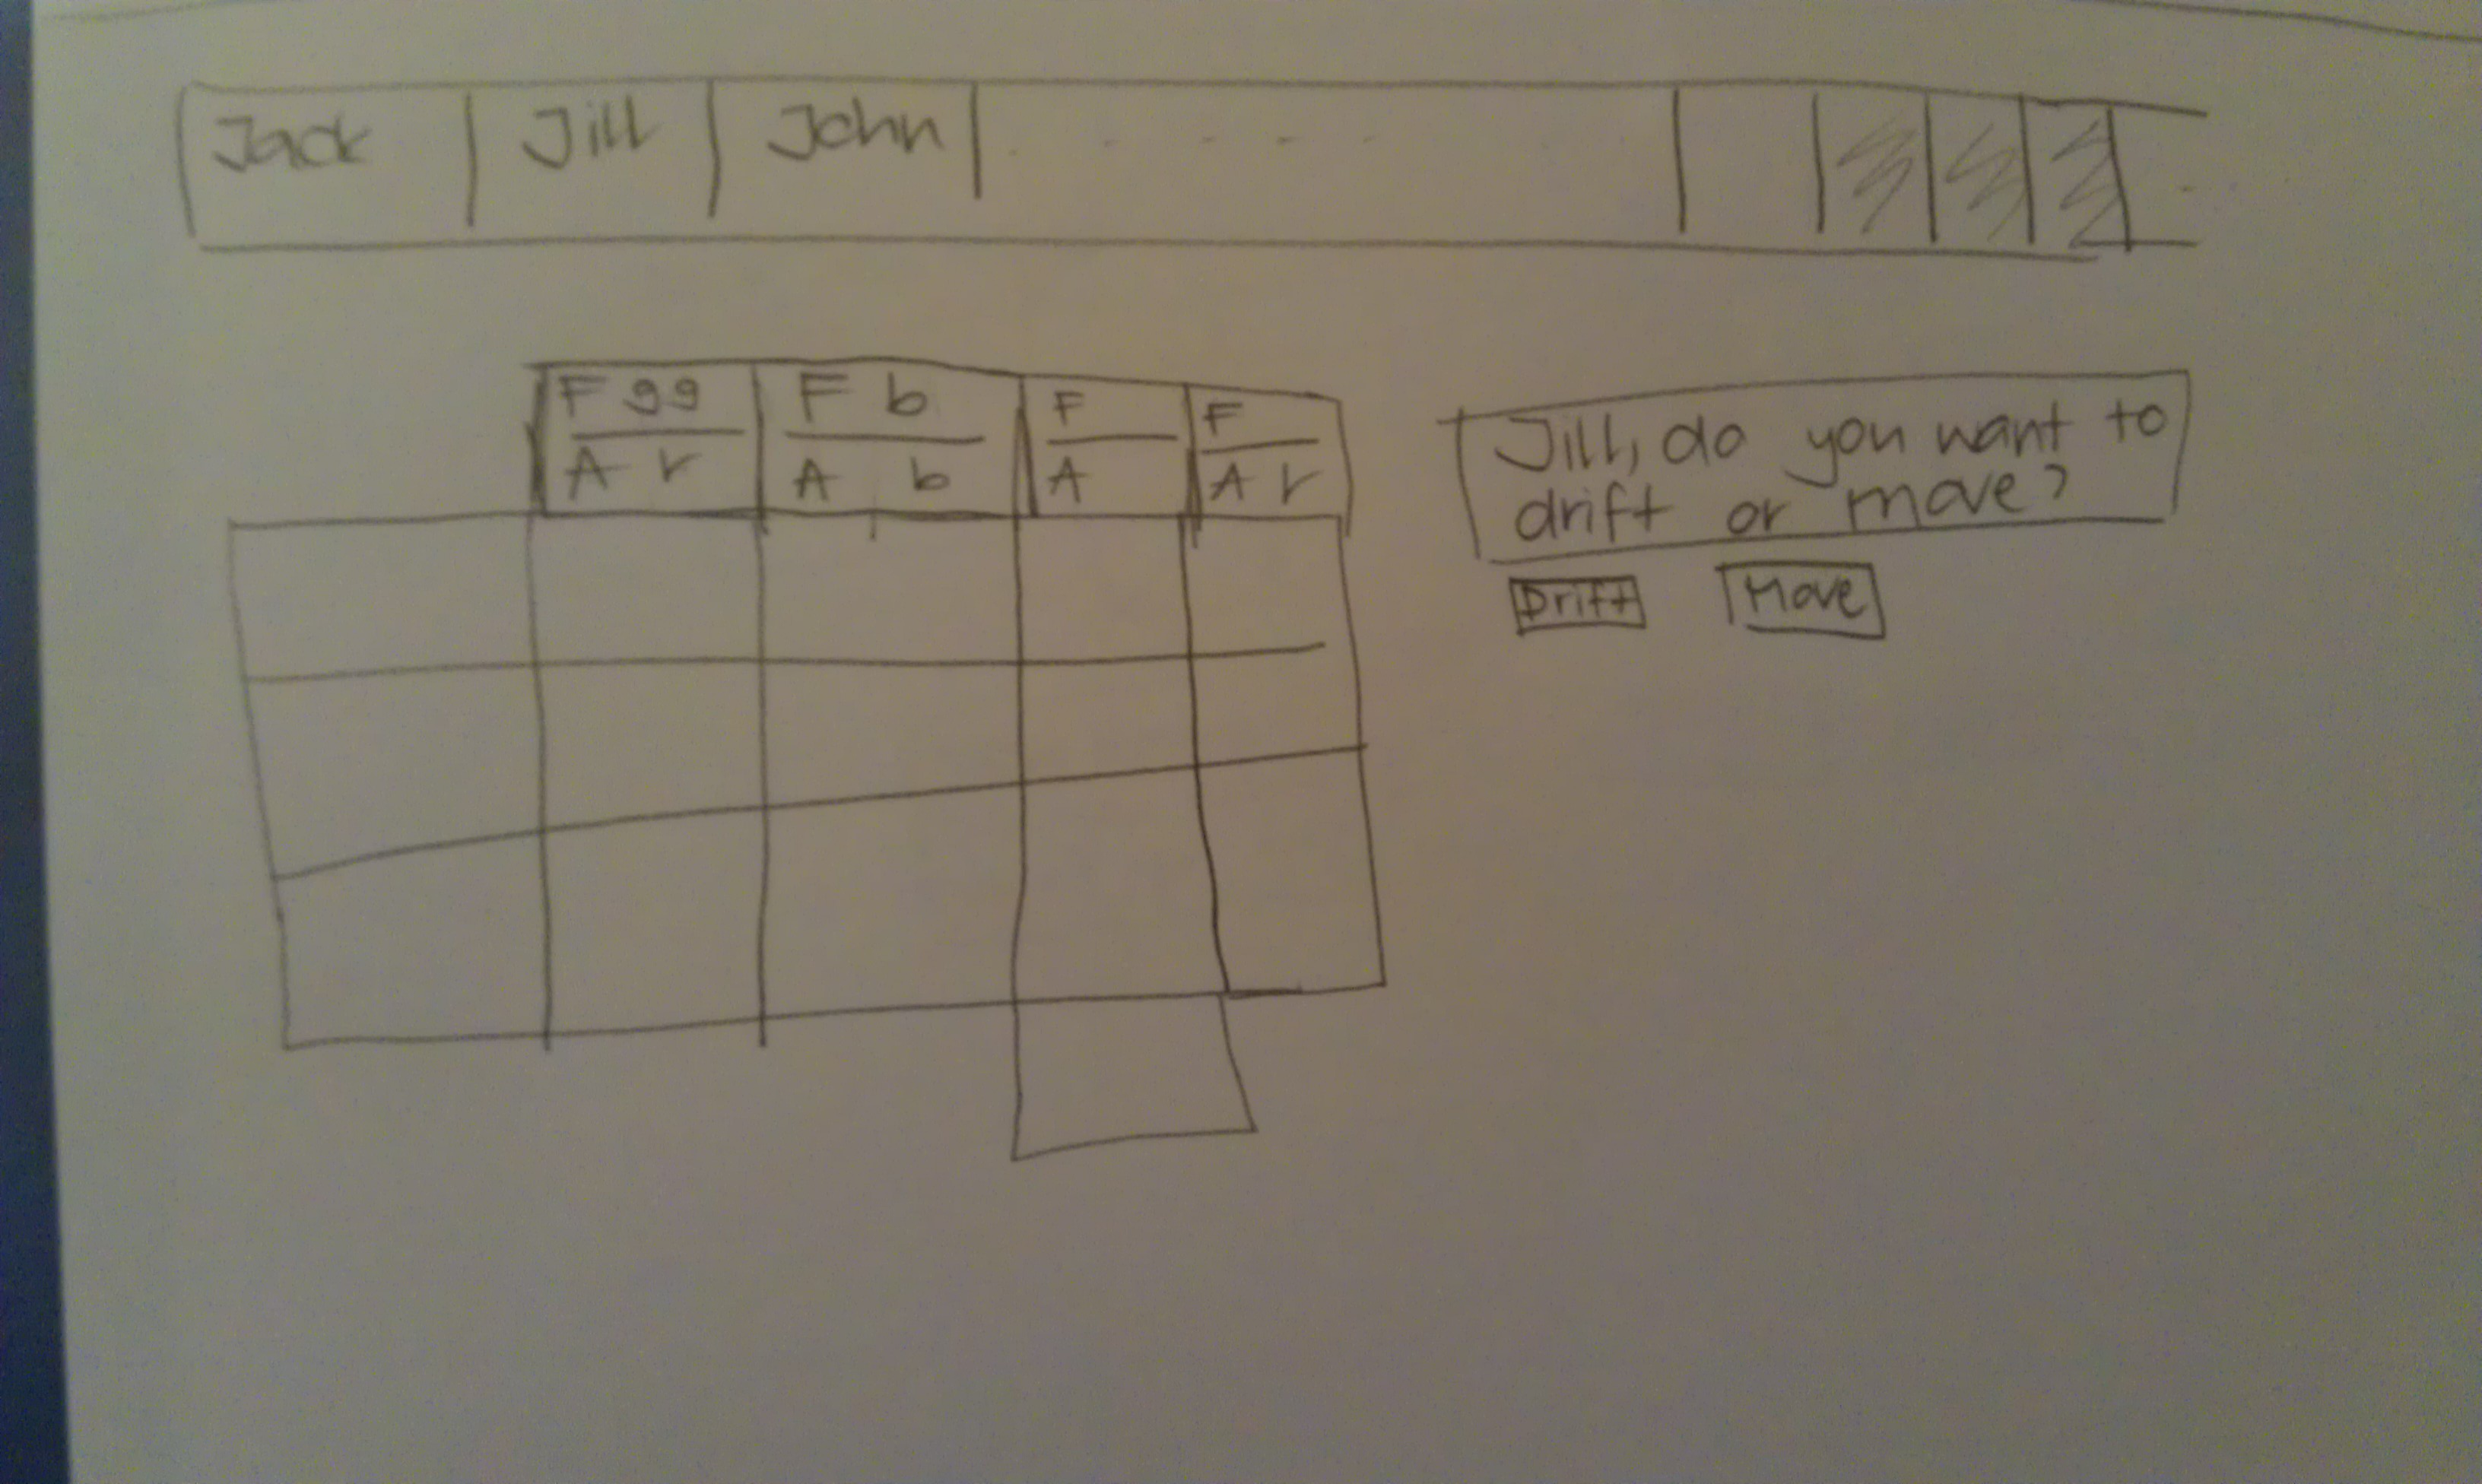 Jack Jill John
F gg F b F F
A r A b A A r
Jill, do you want to
drift or move?
Drift Move